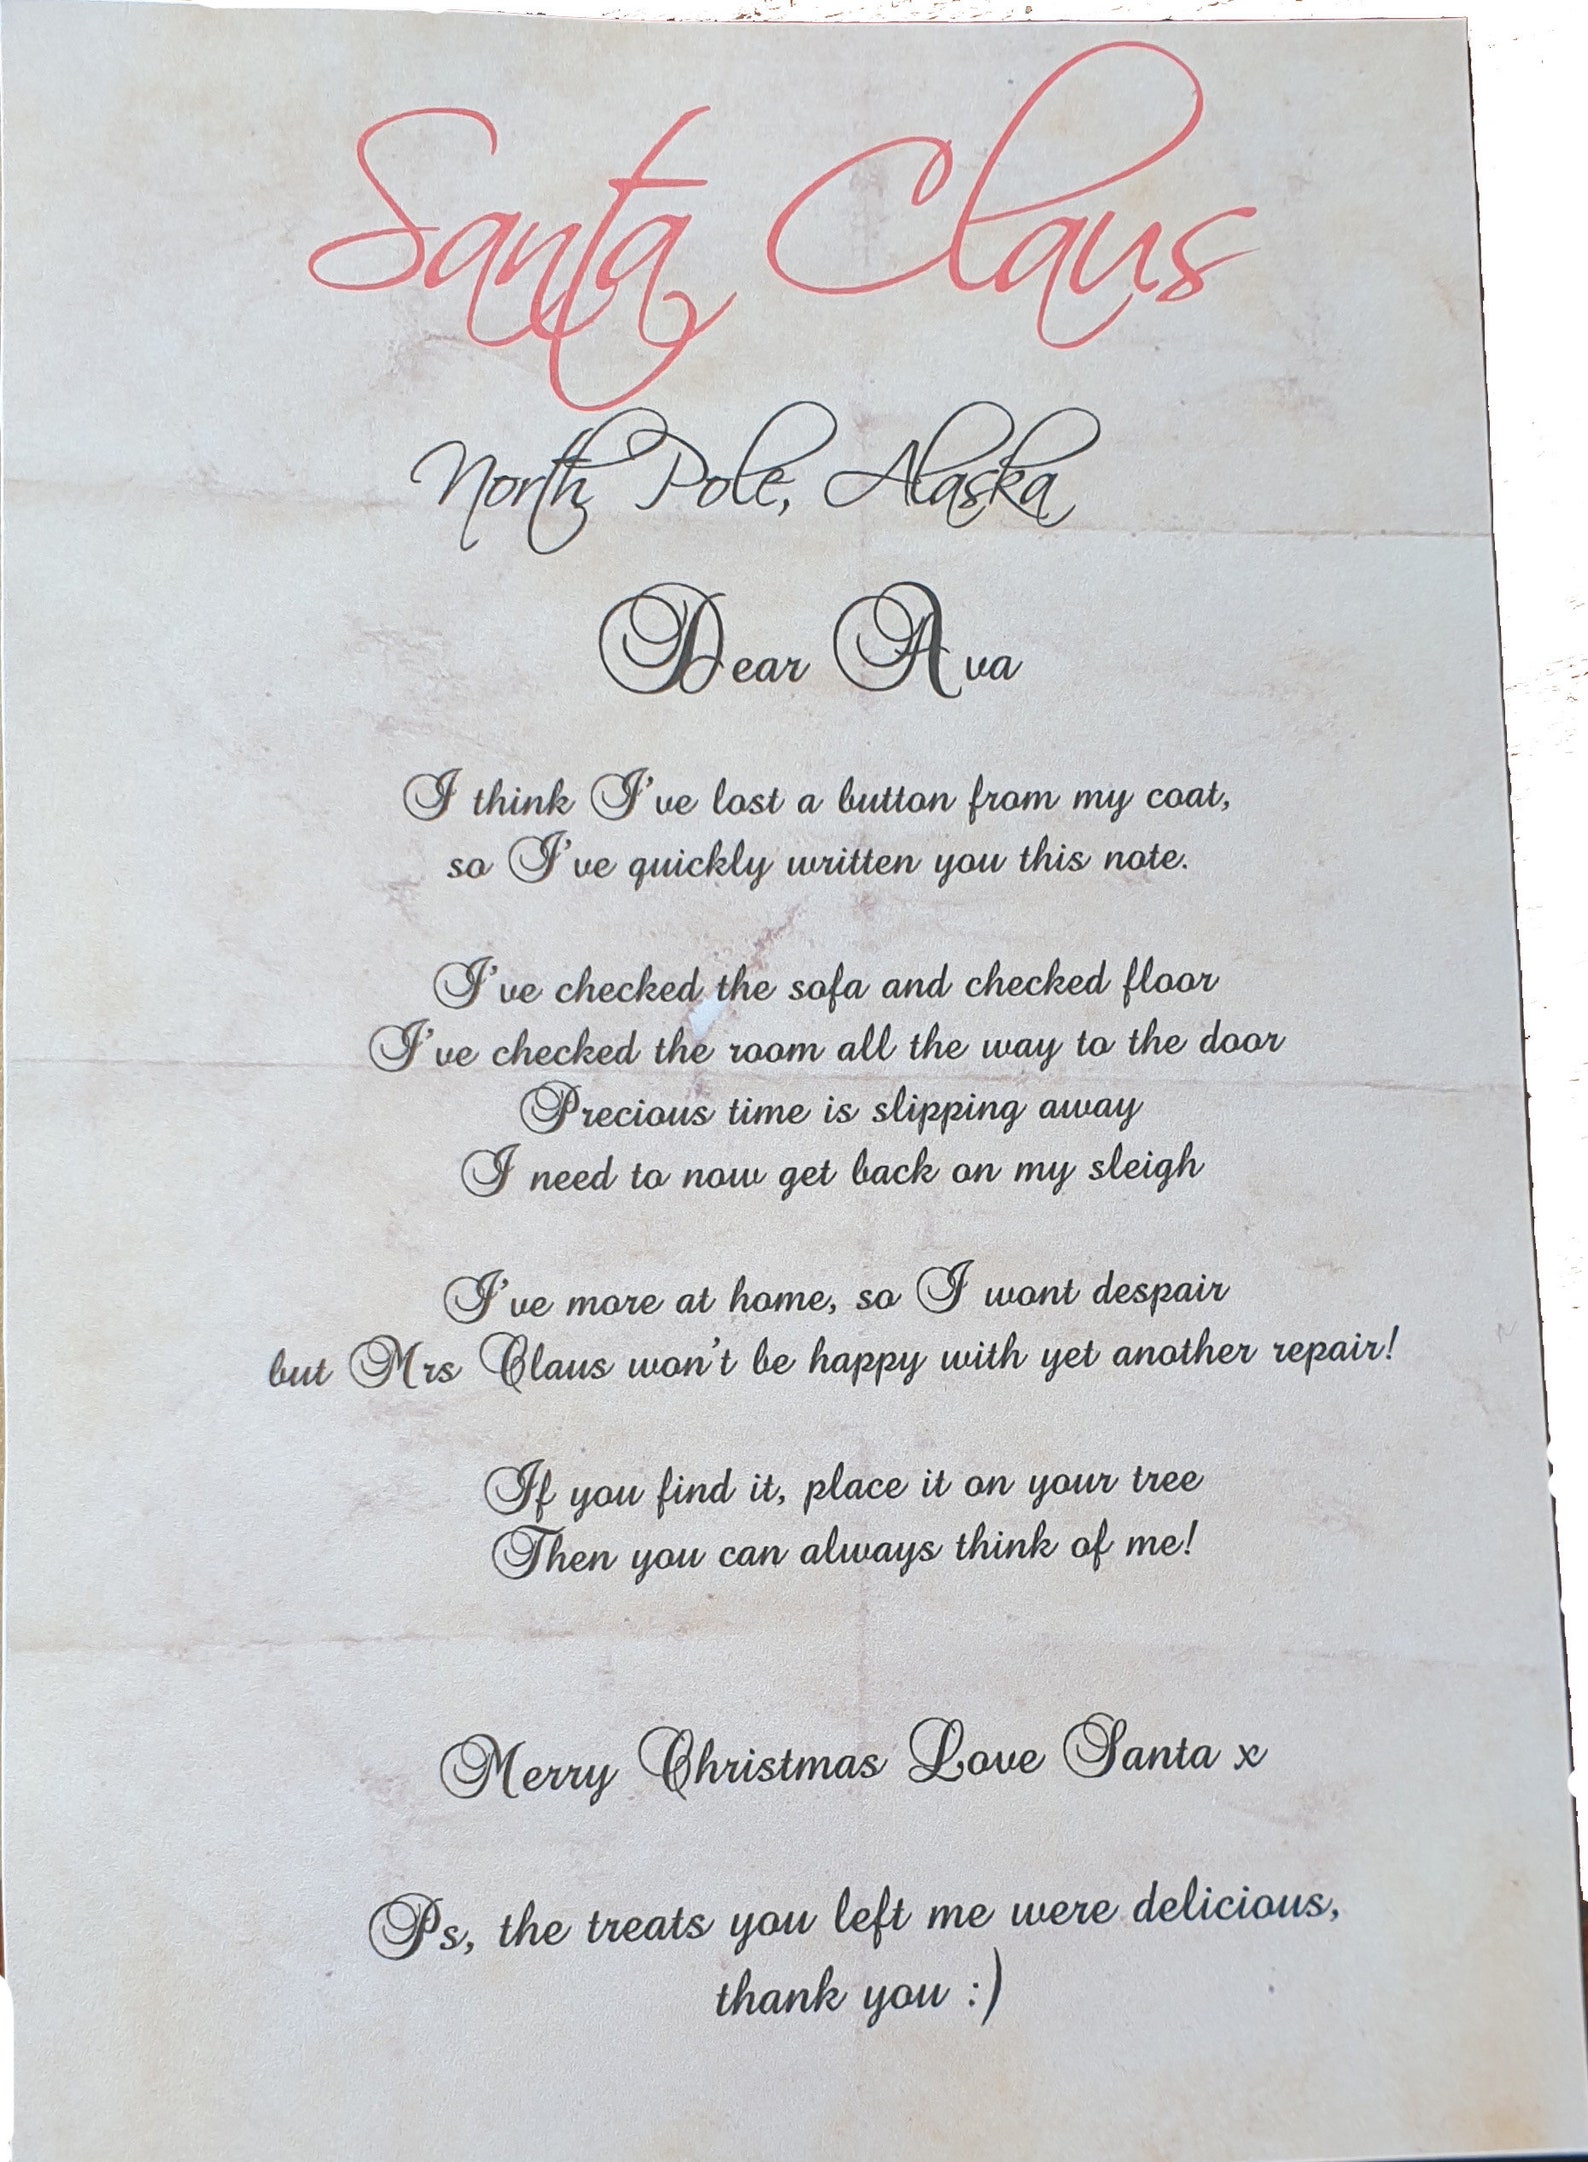 Santa Claus
North Pole, Alaska
Dear Ava
I think I've lost a button from my coat,
so I've quickly written you this note.
I've checked the sofa and checked floor
I've checked the room all the way to the door
Precious time is slipping away
I need to now get back on my sleigh
I've more at home, so I wont despair
but Mrs Claus won't be happy with yet another repair!
If you find it, place it on your tree
Then you can always think of me!
Merry Christmas Love Santa x
Ps, the treats you left me were delicious,
thank you :)